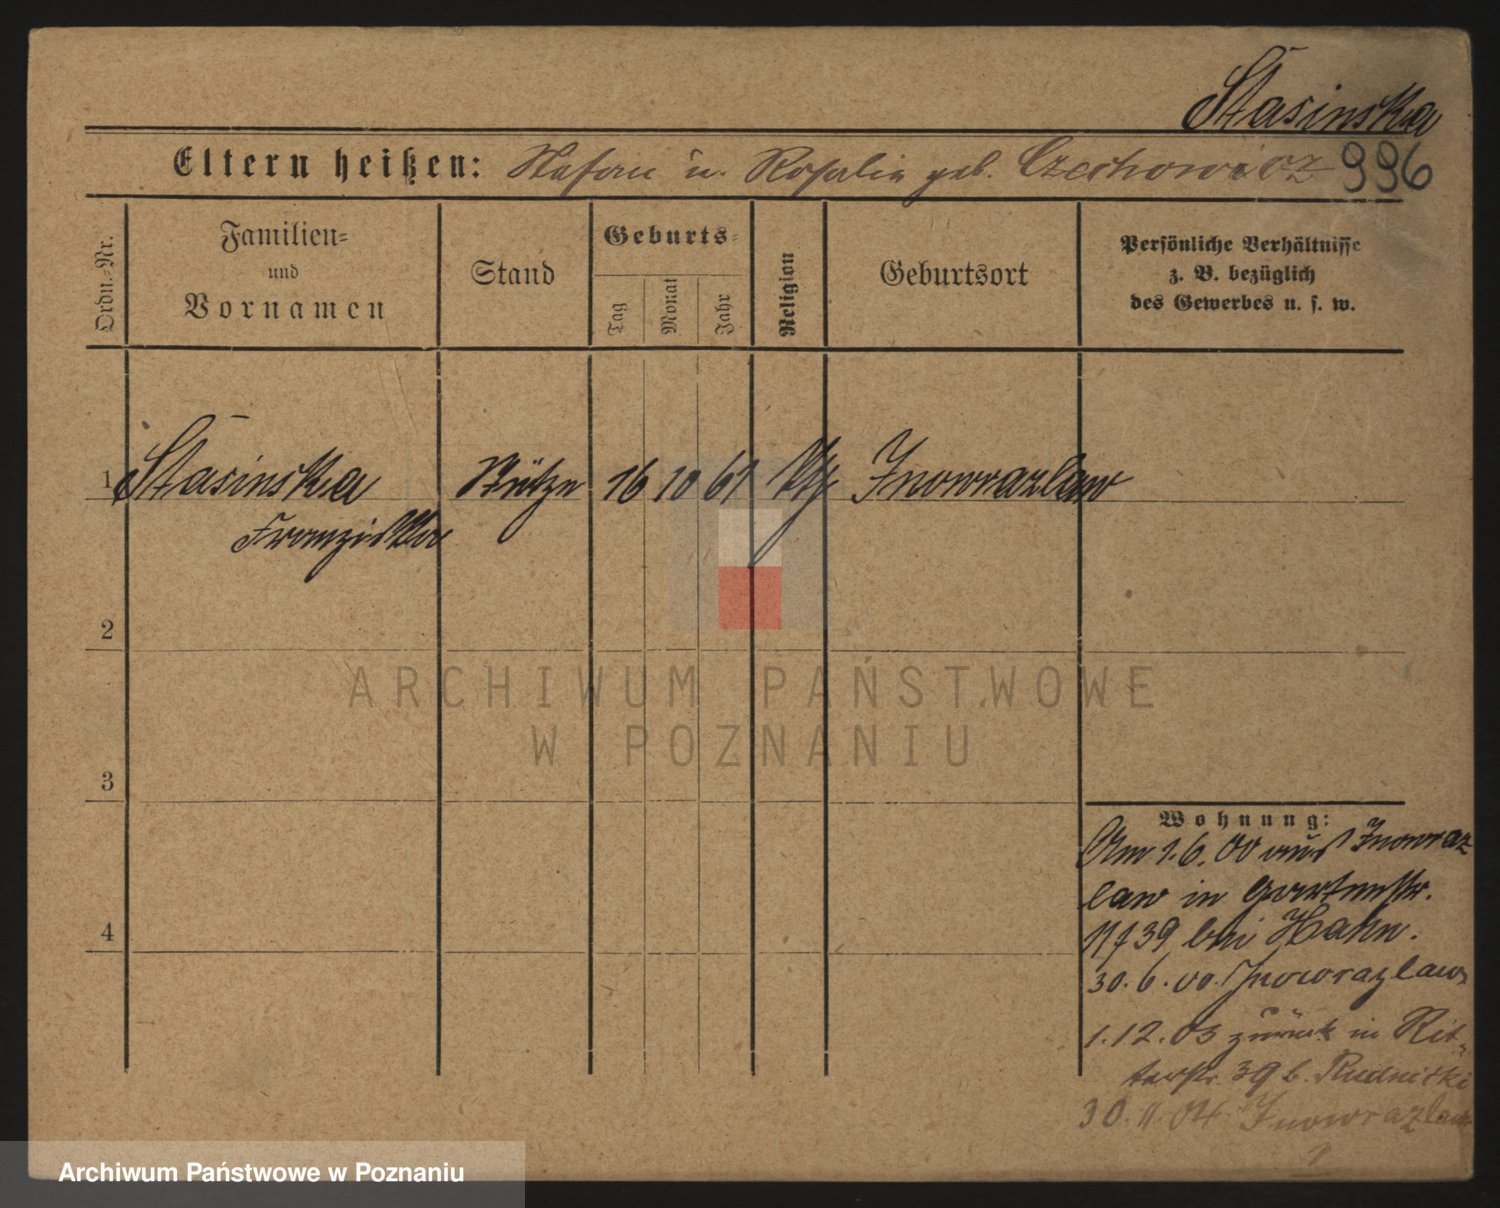 Stasinska
Eltern heißen: Stefan u. Rosalie geb. Czechowicz 996
Ordn.-Nr.
Familien-
und
Vornamen
Stand
Geburts-
Tag
Monat
Jahr
Religion
Geburtsort
Persönliche Verhältnisse
z. B. bezüglich
des Gewerbes u. s. w.
1 Stasinska Stütze 16 10 61 Inowrazlaw
Franziska
2
3
4
Wohnung:
Am 1.6.00 aus Inowraz
law in Gartenstr.
39 bei Hahn.
30.6.00. Inowrazlaw
1.12.03 zurück in Rit-
terstr. 39 b. Rudnitzki
30.11.04 Inowrazlaw
ARCHIWUM PAŃSTWOWE
W POZNANIU
Archiwum Państwowe w Poznaniu